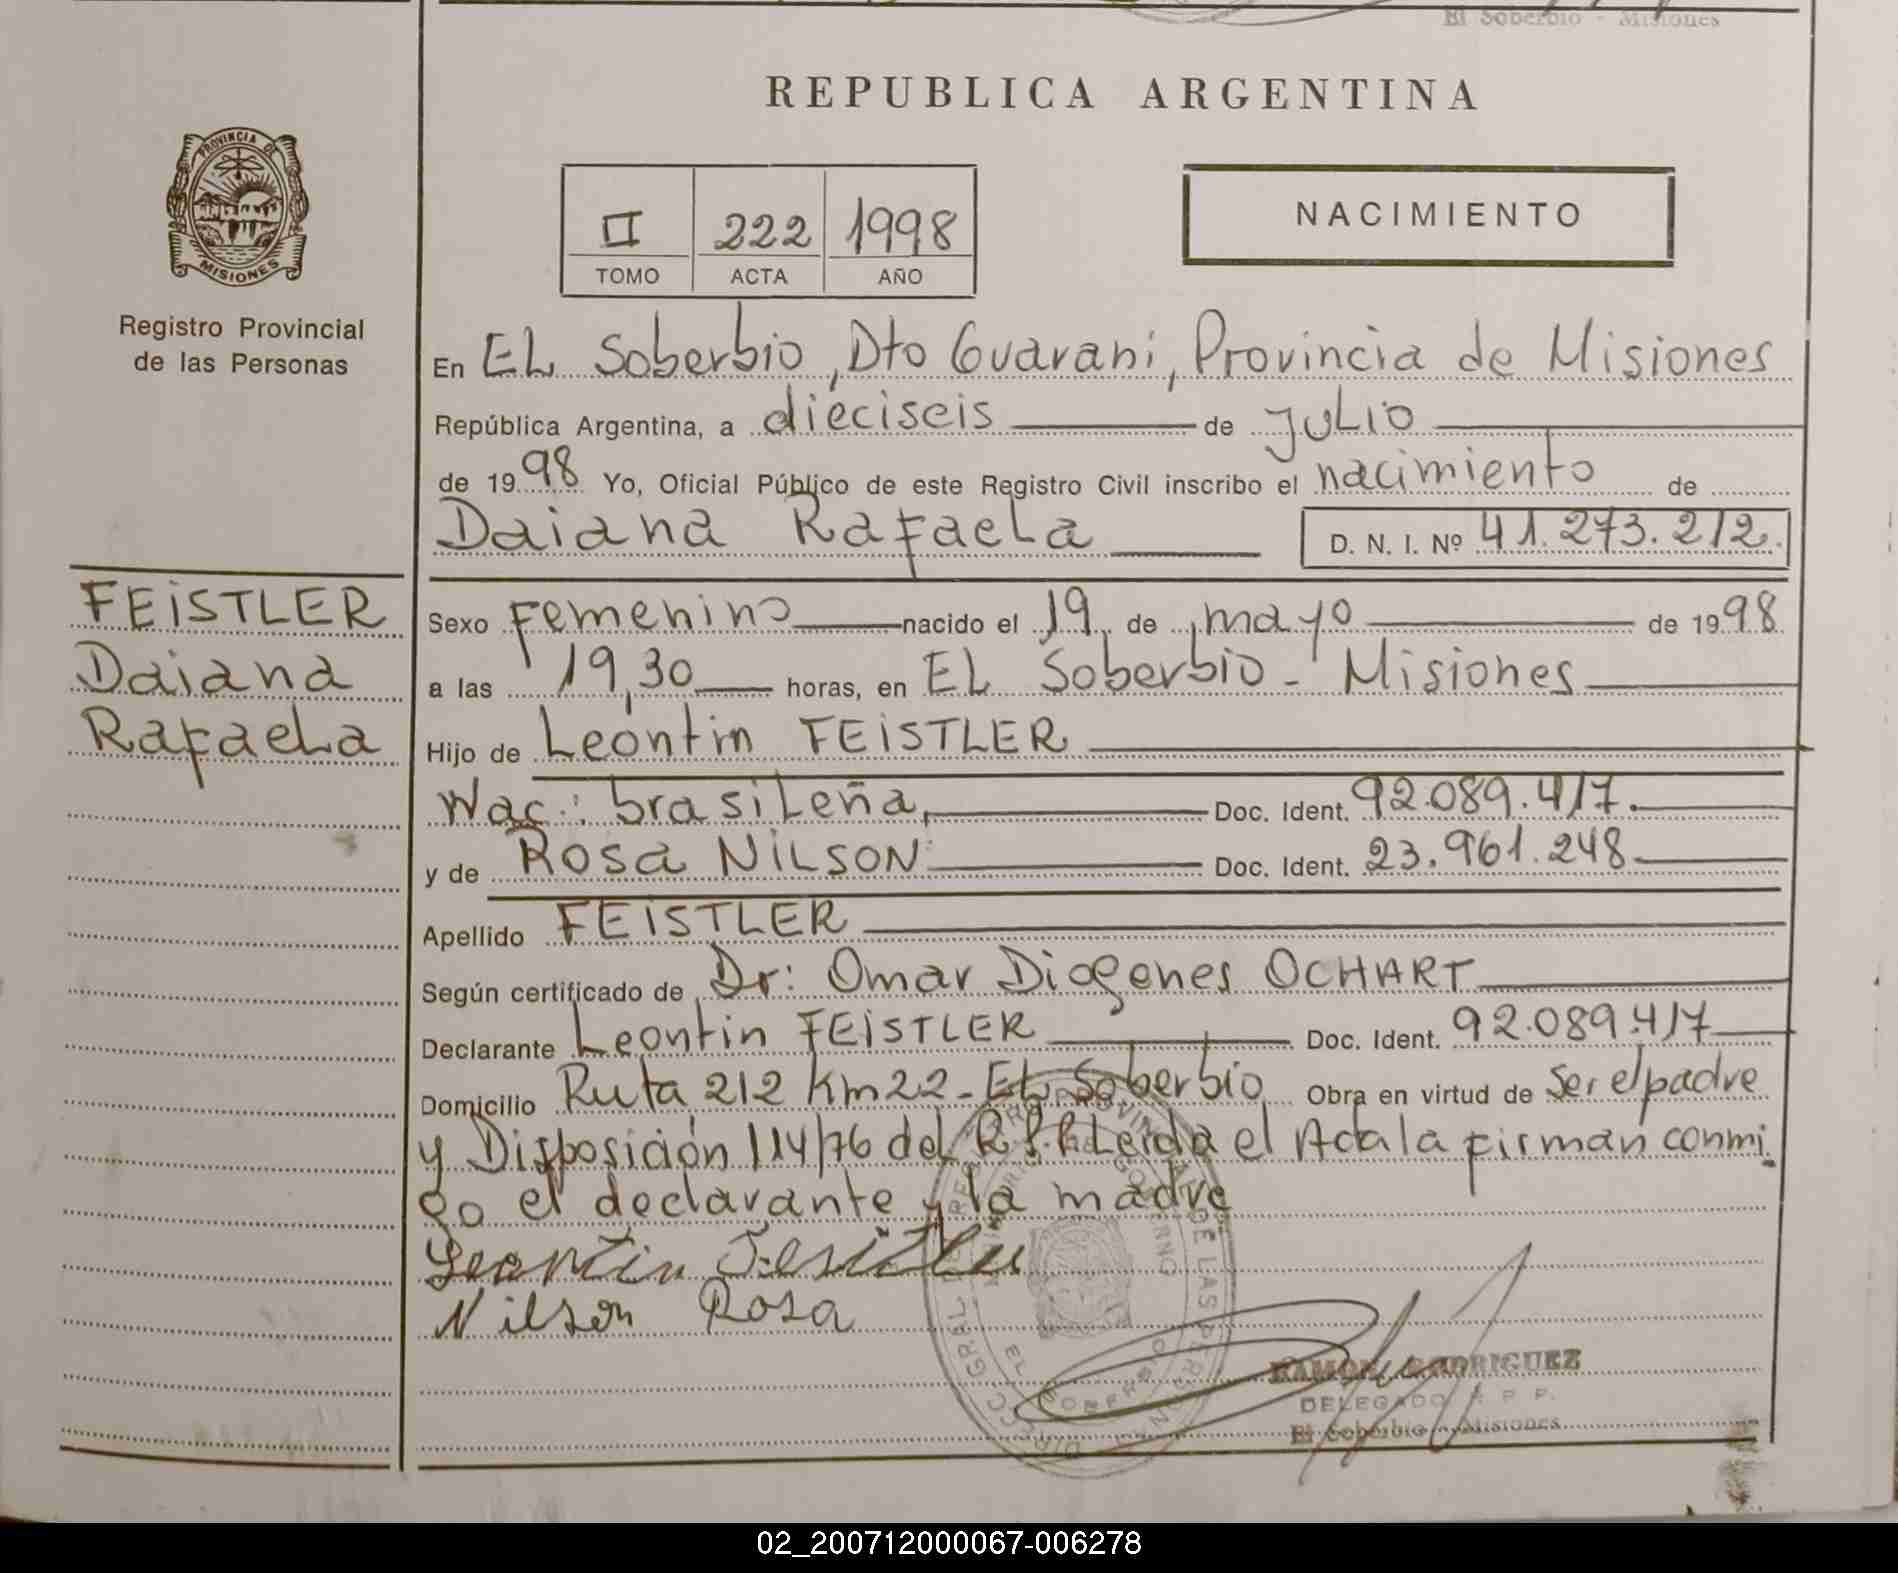 El Soberbio - Misiones
REPUBLICA ARGENTINA
PROVINCIA DE
MISIONES
Registro Provincial
de las Personas
II 222 1998
TOMO ACTA AÑO
NACIMIENTO
En EL Soberbio, Dto Guarani, Provincia de Misiones
República Argentina, a dieciseis de JULIO
de 1998 Yo, Oficial Público de este Registro Civil inscribo el nacimiento de
Daiana Rafaela D. N. I. Nº 41.273.212.
FEISTLER
Daiana
Rafaela
Sexo Femenino nacido el 19 de mayo de 1998
a las 19,30 horas, en EL Soberbio - Misiones
Hijo de Leontin FEISTLER
Nac.: brasileña, Doc. Ident. 92.089.417.
y de Rosa NILSON Doc. Ident. 23.961.248
Apellido FEISTLER
Según certificado de Dr: Omar Diogenes OCHART
Declarante Leontin FEISTLER Doc. Ident. 92.089.417
Domicilio Ruta 212 Km 22 - EL Soberbio Obra en virtud de Ser el padre
y Disposición 114/76 del R.P.P. Leida el Acta la firman conmi
go el declarante y la madre
Leontin Feistler
Nilson Rosa
RAMON RODRIGUEZ
DELEGADO R. P. P.
El Soberbio - Misiones
02_200712000067-006278